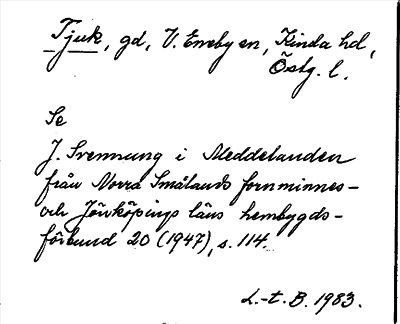 Tjuk, gd, V. Eneby sn, Kinda hd,
Östg. l.
Se
J. Svennung i Meddelanden
från Norra Smålands fornminnes-
och Jönköpings läns hembygds-
förbund 20 (1947), s. 114.
L.-t. B. 1983.